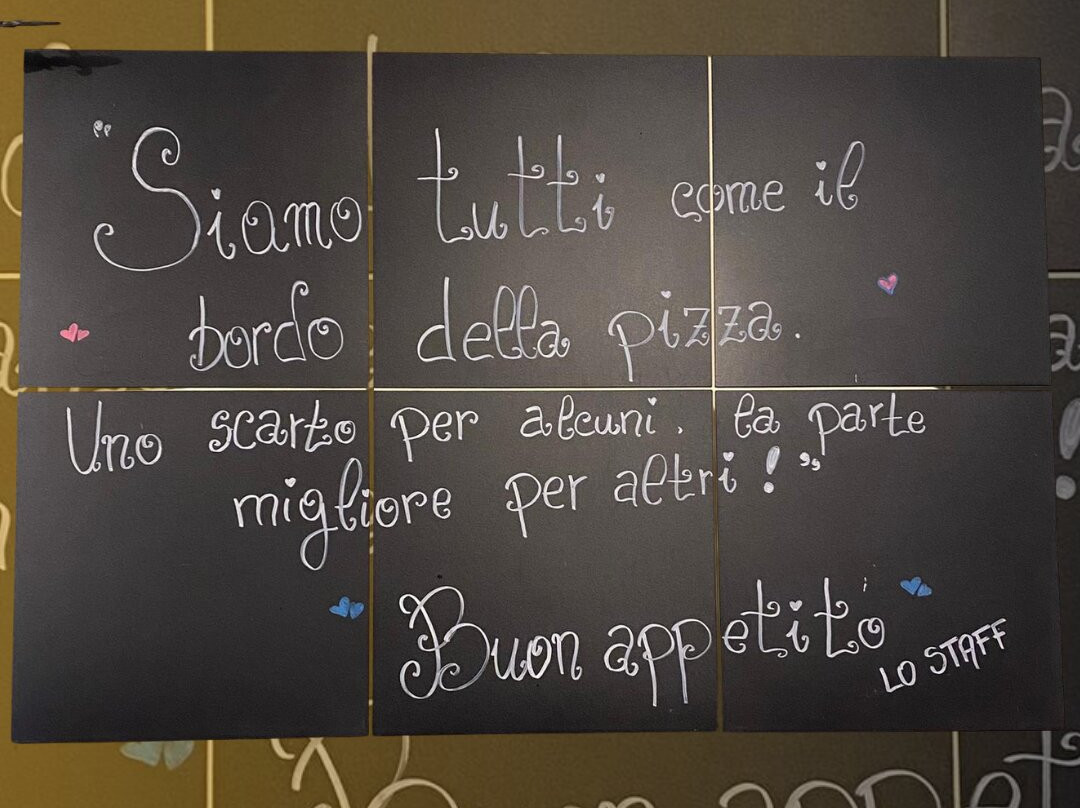 "Siamo tutti come il
bordo della pizza.
Uno scarto per alcuni, la parte
migliore per altri!"
Buon appetito
LO STAFF